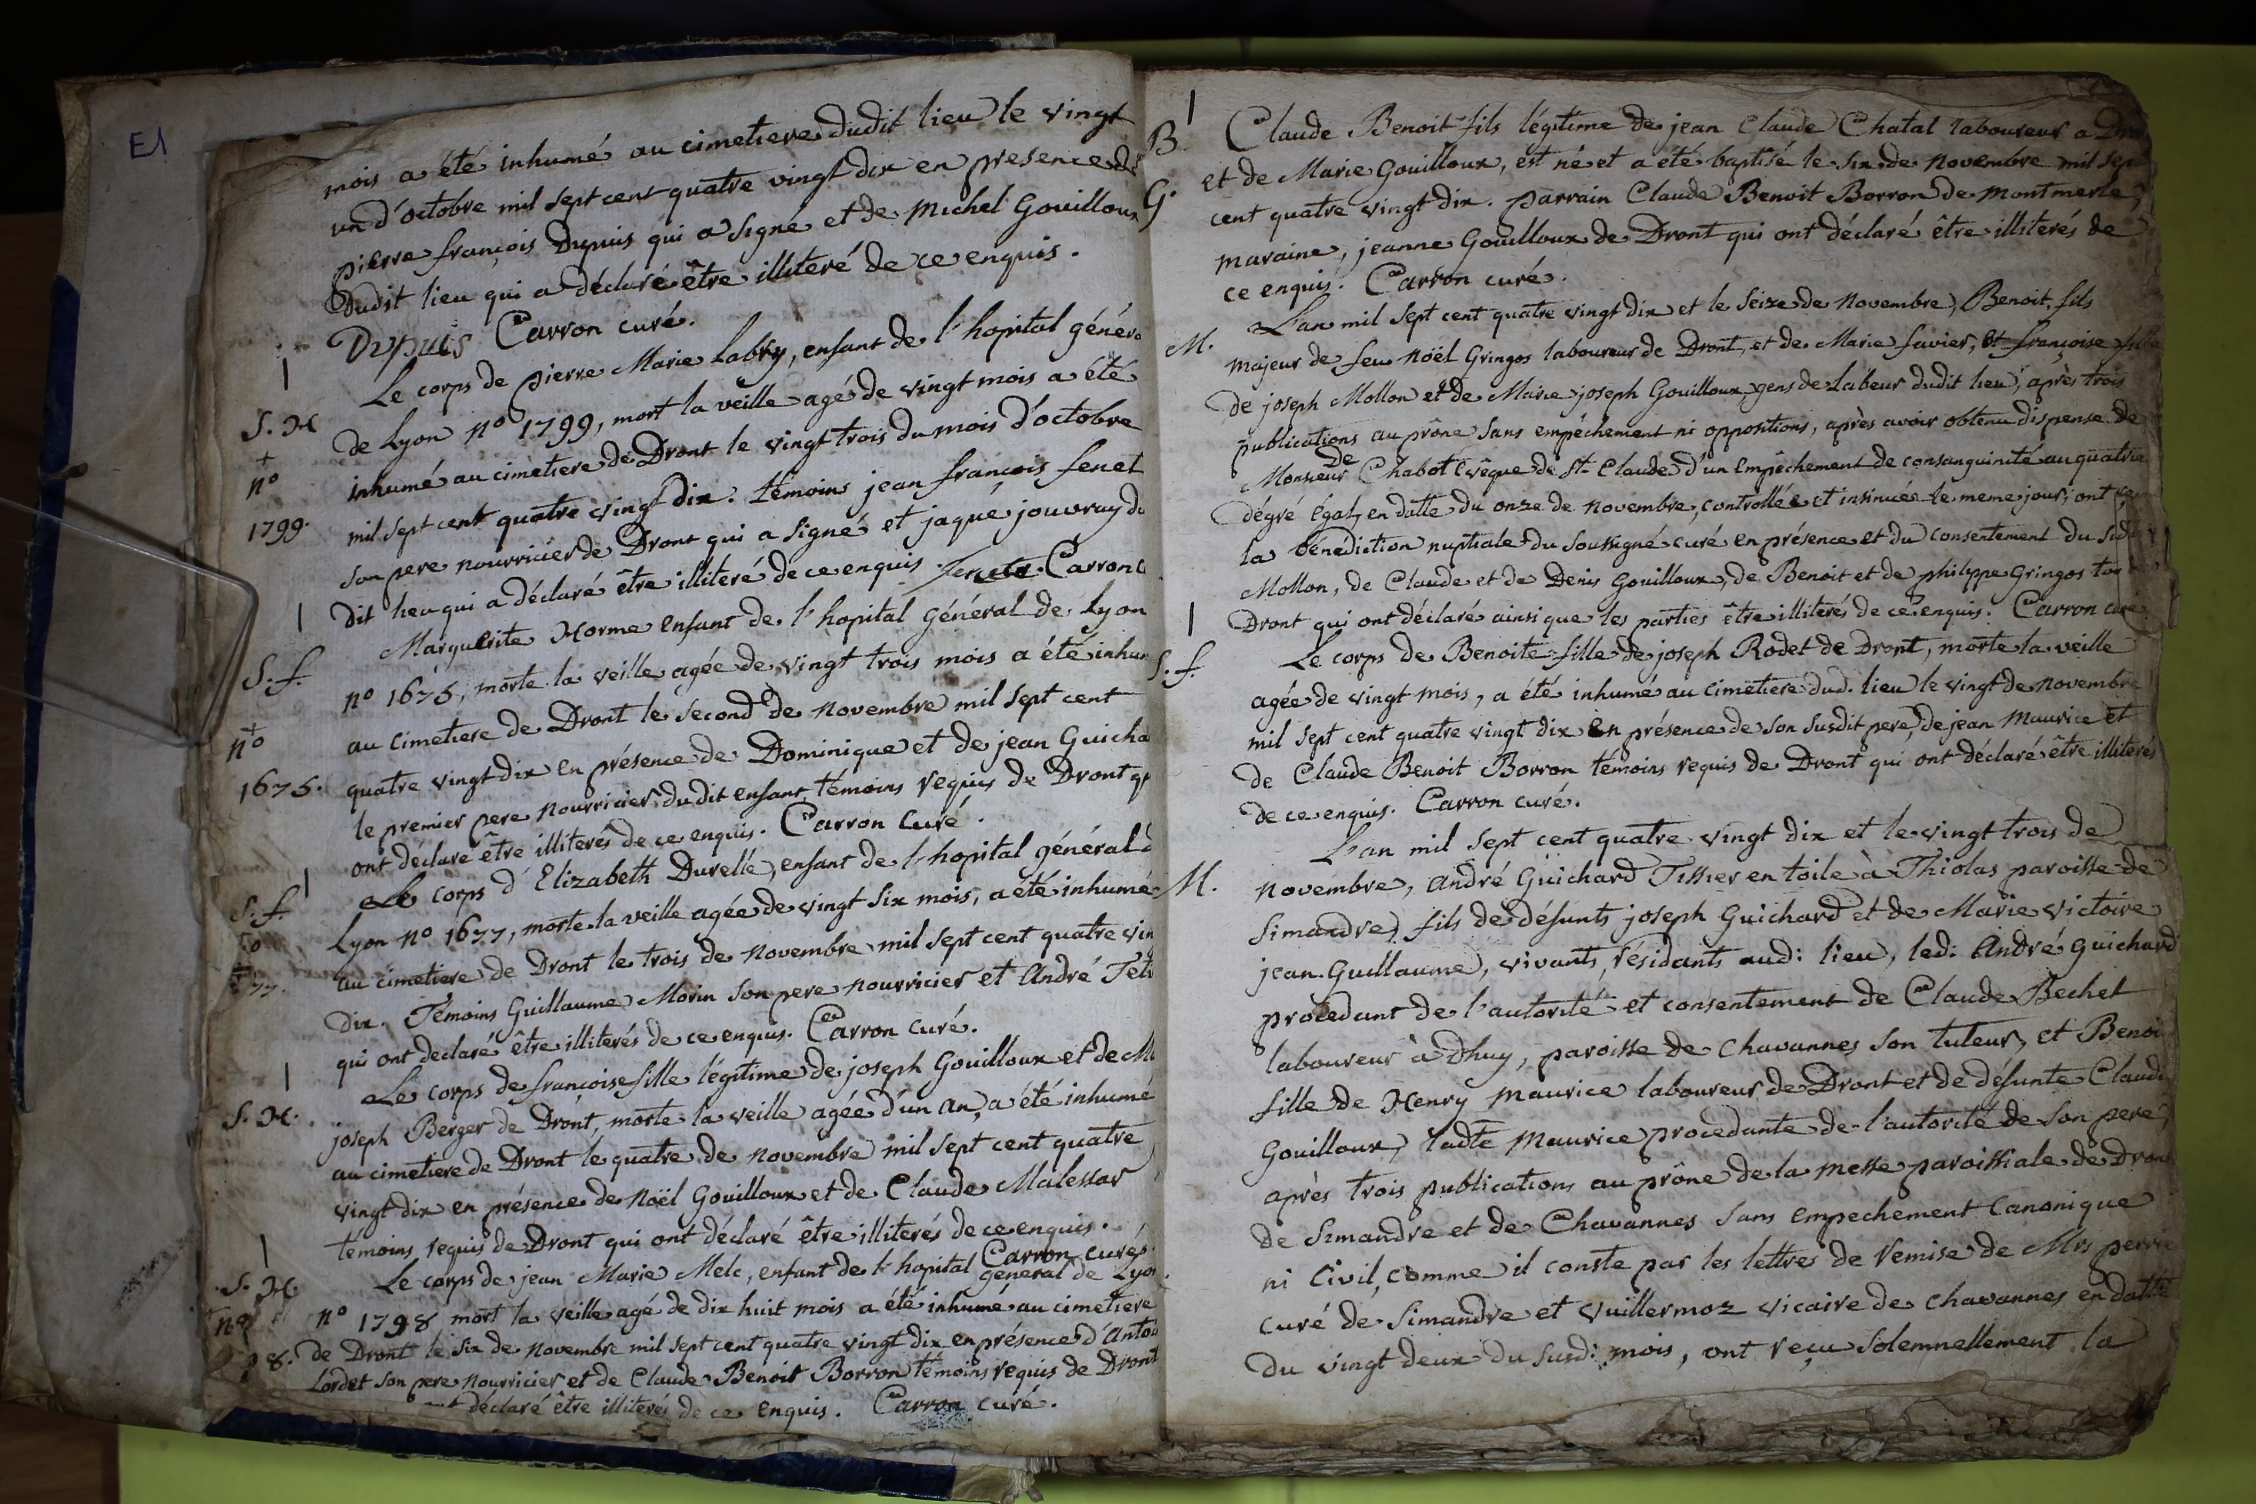 E1
mois a été inhumé au cimetiere dudit lieu le vingt
un d'octobre mil sept cent quatre vingt dix en presence de
pierre françois Dupuis qui a signé et de Michel Gouilloux
dudit lieu qui a déclaré être illiteré de ce enquis.
Dupuis Carron curé.
Le corps de pierre Marie Labry, enfant de l'hopital généra
S. H
de Lyon n° 1799, mort la veille agé de vingt mois a été
+
n°
inhumé au cimetiere de Dront le vingt trois du mois d'octobre
1799.
mil sept cent quatre vingt dix. témoins jean françois fenet
son pere nourricier de Dront qui a signé et jaque jouvray du
dit lieu qui a déclaré être illiteré de ce enquis. Carron c
Marguerite Horme enfant de l'hopital général de Lyon
S. f.
n° 1675, morte la veille agée de vingt trois mois a été inhum
+
n°
au cimetiere de Dront le second de novembre mil sept cent
1675.
quatre vingt dix en présence de Dominique et de jean Guicha
le premier pere nourricier du dit enfant témoins requis de Dront q
ont déclaré être illiterés de ce enquis. Carron Curé.
Le corps d'Elizabeth Durelle, enfant de l'hopital général d
S. f.
Lyon n° 1677, morte la veille agée de vingt six mois, a été inhumé
77.
au cimetiere de Dront le trois de novembre mil sept cent quatre vin
dix. Témoins Guillaume Morin son pere nourricier et André
qui ont déclaré être illiterés de ce enquis. Carron Curé.
Le corps de françoise fille légitime de joseph Gouilloux et de M
S. H.
joseph Berger de Dront, morte la veille agée d'un an, a été inhumé
au cimetiere de Dront le quatre de novembre mil sept cent quatre
vingt dix en présence de Noël Gouilloux et de Claude Malessar
témoins requis de Dront qui ont déclaré être illiterés de ce enquis.
Carron curé.
Le corps de jean Marie Mele, enfant de l'hopital général de Lyon
S. H.
n° 1798 mort la veille agé de dix huit mois a été inhumé au cimetiere
n°
de Dront le six de novembre mil sept cent quatre vingt dix en présence d'Antoi
98.
Lordet son pere nourricier et de Claude Benoit Borron témoins requis de Dront
déclaré être illiterés de ce enquis. Carron curé.
B.
Claude Benoit fils légitime de jean Claude Chatal laboureur a Dron
G.
et de Marie Gouilloux, est né et a été baptisé le six de novembre mil sept
cent quatre vingt dix. parrain Claude Benoit Borron de montmerle,
maraine, jeanne Gouilloux de Dront qui ont déclaré être illiterés de
ce enquis. Carron curé.
M.
L'an mil sept cent quatre vingt dix et le seize de novembre, Benoit fils
majeur de feu Noël Gringos laboureur de Dront, et de Marie favier, et françoise fille
de joseph Mollon et de Marie joseph Gouilloux, gens de labeur dudit lieu, après trois
publications au prône sans empêchement ni oppositions, après avoir obtenu dispense de
de
Monsieur Chabot Evêque de St. Claude d'un empêchement de consanguinité au quatrie
dégré égal, en datte du onze de novembre, controllée et insinuée le meme jour, ont
la bénédiction nuptiale du soussigné curé en présence et du consentement du susdit
Mollon, de Claude et de Denis Gouilloux, de Benoit et de philippe Gringos
Dront qui ont déclaré ainsi que les parties être illiterés de ce enquis. Carron curé
S. f.
Le corps de Benoite fille de joseph Rodet de Dront, morte la veille
agée de vingt mois, a été inhumé au cimetiere dud. lieu le vingt de novembre
mil sept cent quatre vingt dix en présence de son susdit pere, de jean Maurice et
de Claude Benoit Borron témoins requis de Dront qui ont déclaré être illiterés
de ce enquis. Carron curé.
M.
L'an mil sept cent quatre vingt dix et le vingt trois de
novembre, André Guichard Tissier en toile à Thiolas paroisse de
Simandre, fils de défunts joseph Guichard et de Marie Victoire
jean Guillaume, vivants résidants aud: lieu, led: André Guichard
procedant de l'autorité et consentement de Claude Bechet
laboureur à Dhuy, paroisse de Chavannes son tuteur, et Benoi
fille de Henry Maurice laboureur de Dront et de défunte Claudi
Gouilloux, ladte Maurice procedante de l'autorité de son pere,
après trois publications au prône de la messe paroissiale de Dront
de Simandre et de Chavannes sans empechement Canonique
ni Civil, comme il conste par les lettres de remise de Mrs perrie
curé de Simandre et Vuillermoz vicaire de chavannes en datte
du vingt deux du susd: mois, ont reçu solemnellement la